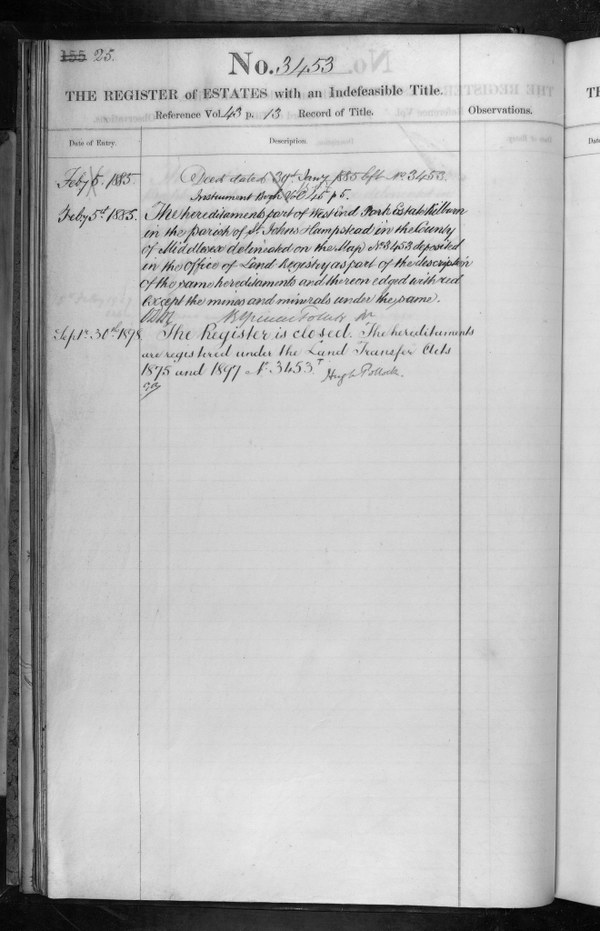 155 25.
No. 3453
THE REGISTER of ESTATES with an Indefeasible Title.
Reference Vol. 43 p. 13 Record of Title.
Observations.
Date of Entry.
Description.
Feby 5. 1885.
Deed dated Jany 1885 No 3453
Instrument Book 46 p 5.
Feby 5th 1885.
The hereditaments part of West end Park Estate Kilburn
in the parish of St. Johns Hampstead in the County
of Middlesex delineated on the Map No 3453 deposited
in the Office of Land Registry as part of the description
of the same hereditaments and thereon edged with red
except the mines and minerals under the same.
Septr. 30th 1898
The Register is closed. The hereditaments
are registered under the Land Transfer Acts
1875 and 1897 No. 3453.
Hugh Pollock.